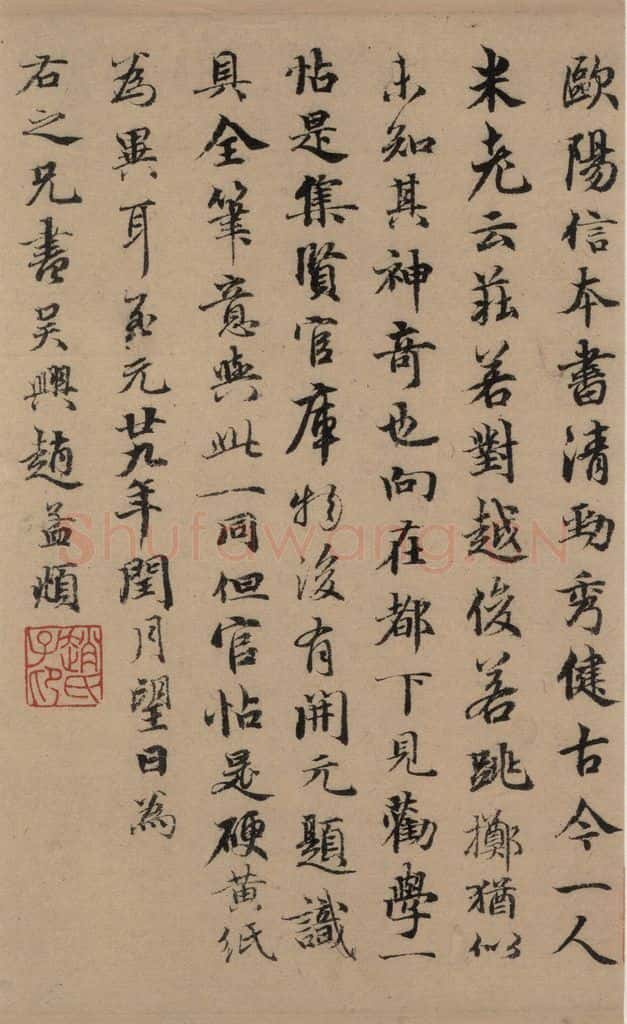 歐陽信本書清勁秀健古今一人
米老云莊若對越俊若跳擲猶似
未知其神奇也向在都下見勸學一
帖是集賢官庫物後有開元題識
具全筆意與此一同但官帖是硬黃紙
為異耳至元廿九年閏月望日為
右之兄書吳興趙孟頫
趙氏子昂
Shufawang.CN